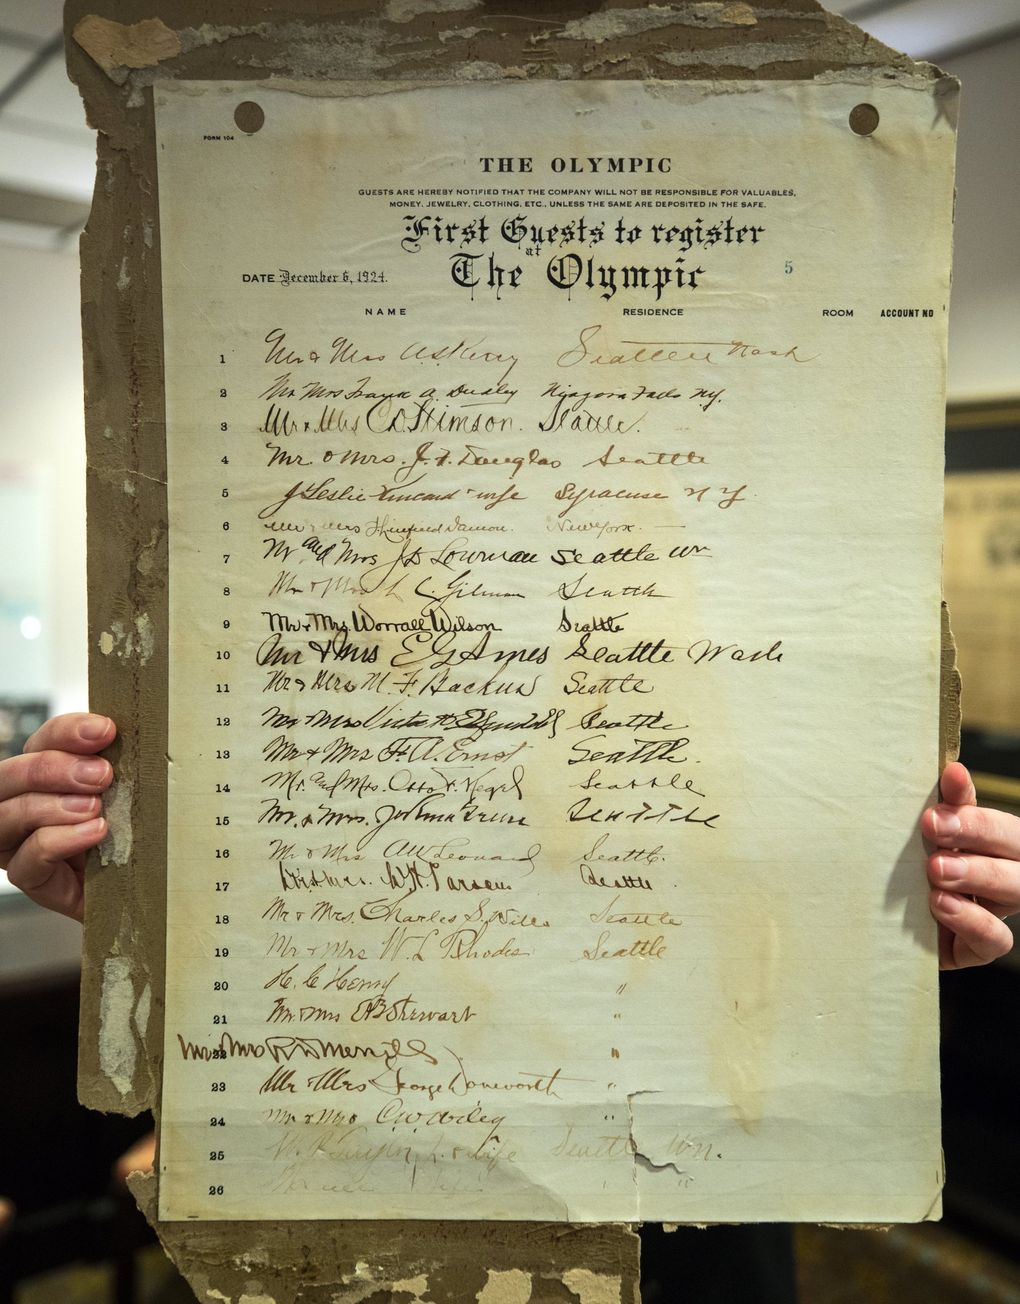 FORM 104
THE OLYMPIC
GUESTS ARE HEREBY NOTIFIED THAT THE COMPANY WILL NOT BE RESPONSIBLE FOR VALUABLES,
MONEY, JEWELRY, CLOTHING, ETC., UNLESS THE SAME ARE DEPOSITED IN THE SAFE.
First Guests to register
at
The Olympic
5
DATE December 6, 1924.
NAME RESIDENCE ROOM ACCOUNT NO
1 Mr & Mrs A.S. Kerry Seattle Wash
2 Mr Mrs Frank A. Dudley Niagara Falls N.Y.
3 Mr & Mrs C D Stimson. Seattle.
4 Mr. & Mrs. J. F. Douglas Seattle
5 J Leslie Kincaid & wife Syracuse N Y.
6 Mr & Mrs Damon. New York.
7 Mr and Mrs J D Lowman Seattle Wn
8 Mr & Mrs L C. Gilman Seattle
9 Mr & Mrs. Worrall Wilson Seattle
10 Mr & Mrs E G Ames Seattle Wash
11 Mr & Mrs M. F. Backus Seattle
12 Mr & Mrs Victor Seattle
13 Mr & Mrs F. A. Ernst Seattle.
14 Mr. and Mrs. Otto F. Kegel Seattle
15 Mr. & Mrs. Joshua Green Seattle
16 Mr & Mrs AW Leonard Seattle.
17 Mr & Mrs. W. H. Parsons Seattle
18 Mr & Mrs. Charles S. Wills Seattle
19 Mr & Mrs W. L Rhodes Seattle
20 H. C Henry "
21 Mr & Mrs AB Stewart "
22 Mr & Mrs R D Merrill "
23 Mr & Mrs George Donworth "
24 Mr & Mrs C. W "
25 & wife Seattle Wn.
26 " "